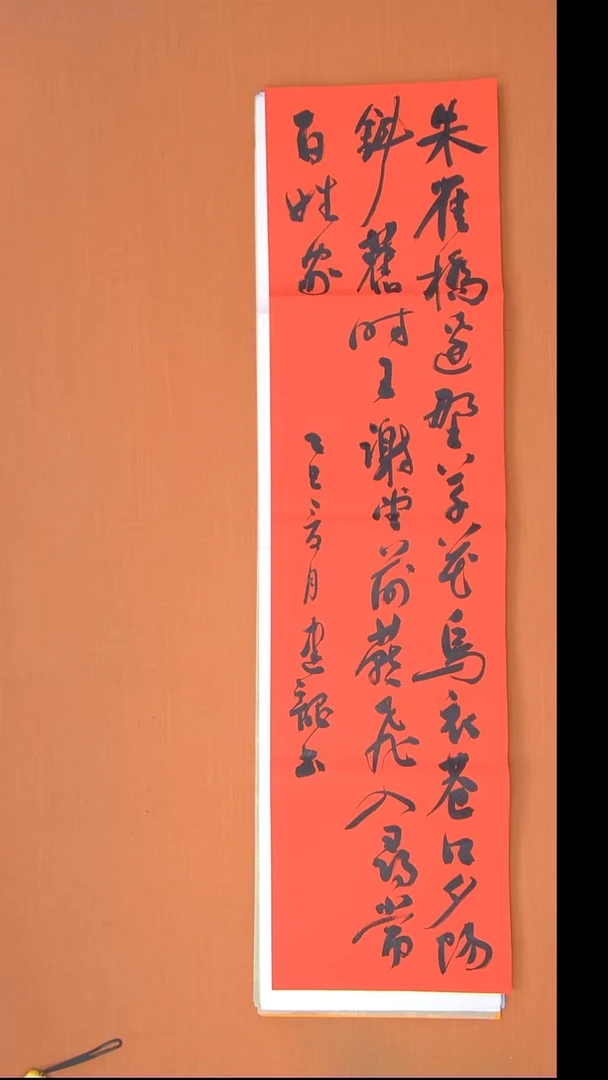 朱雀橋邊野草花烏衣巷口夕陽
斜舊時王謝堂前燕飛入尋常
百姓家
乙巳月建龍書